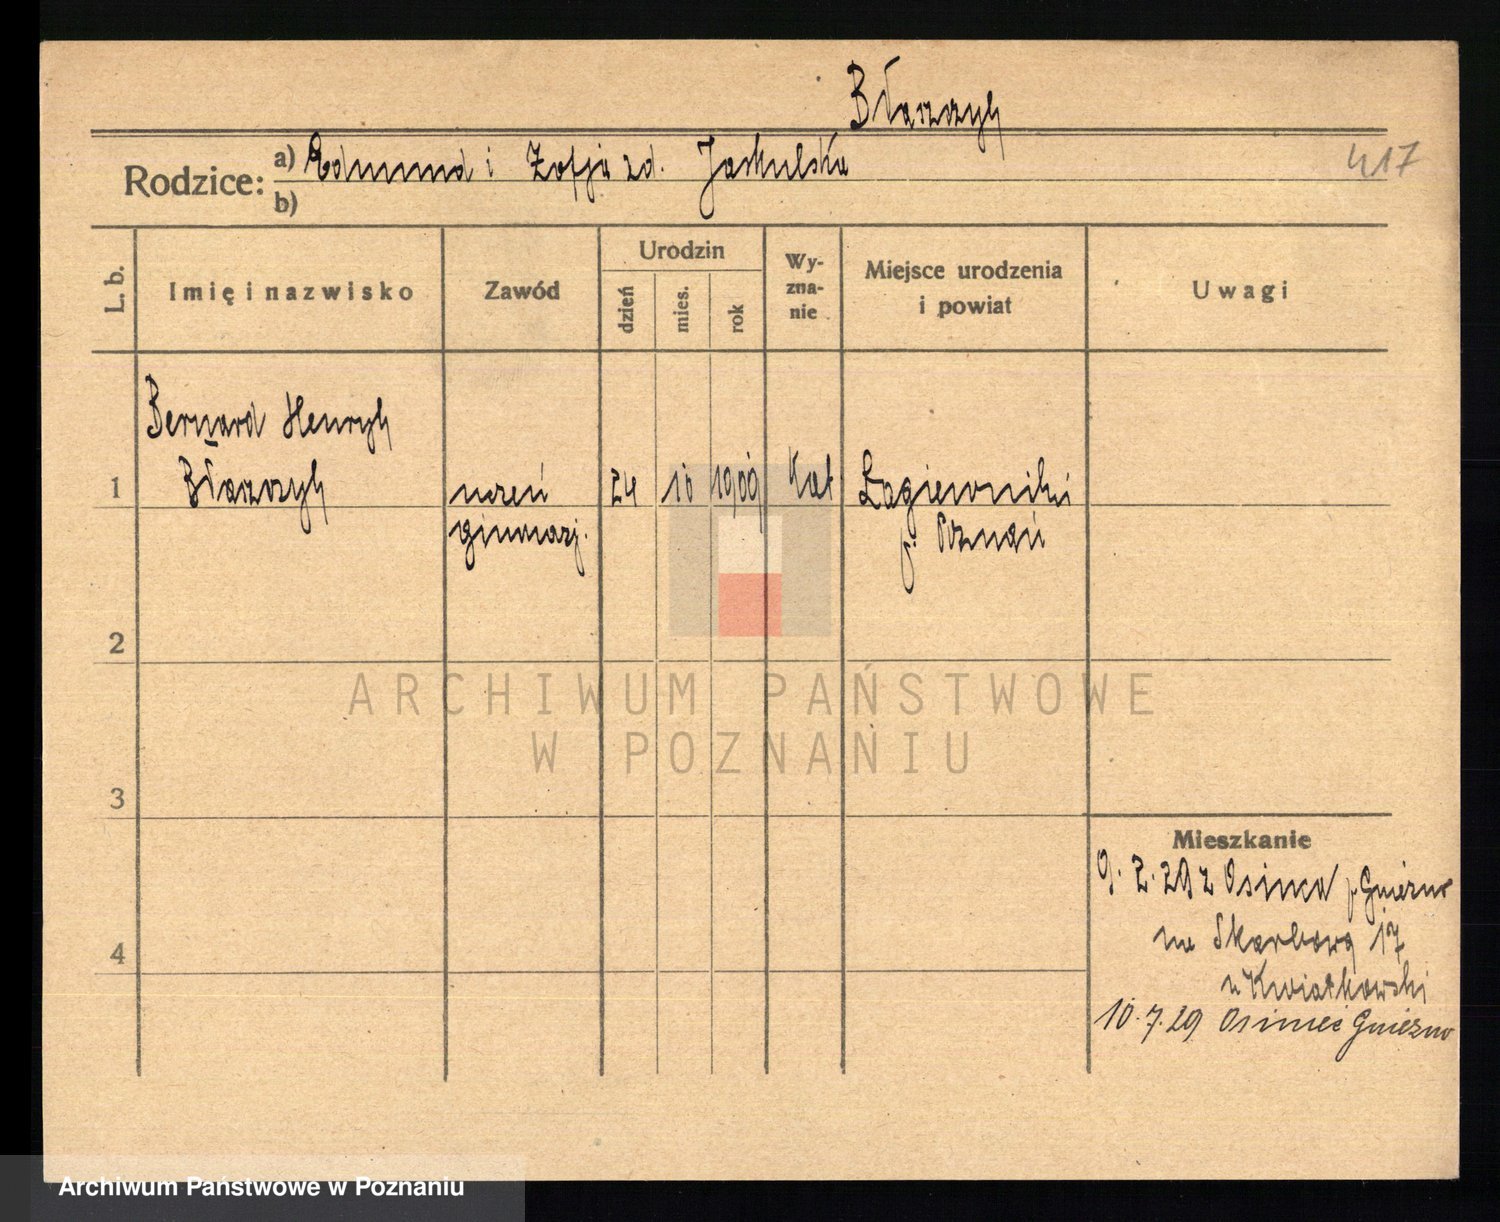 Błaszczyk
417
Rodzice: a) Edmund i Zofja zd. Jaskulska
b)
L. b. Imię i nazwisko Zawód Urodzin dzień mies. rok Wy-zna-nie Miejsce urodzenia i powiat Uwagi
Bernard Henryk
1 Błaszczyk uczeń 24 10 1909 Kat Łagiewniki
gimnazj. p. Poznań
2
ARCHIWUM PAŃSTWOWE
W POZNANIU
3
Mieszkanie
9. 2. 29 z Osiniec p Gniezno
na Skarbową 17
4
u Kwiatkowski
10. 7. 29 Osiniec Gniezno
Archiwum Państwowe w Poznaniu